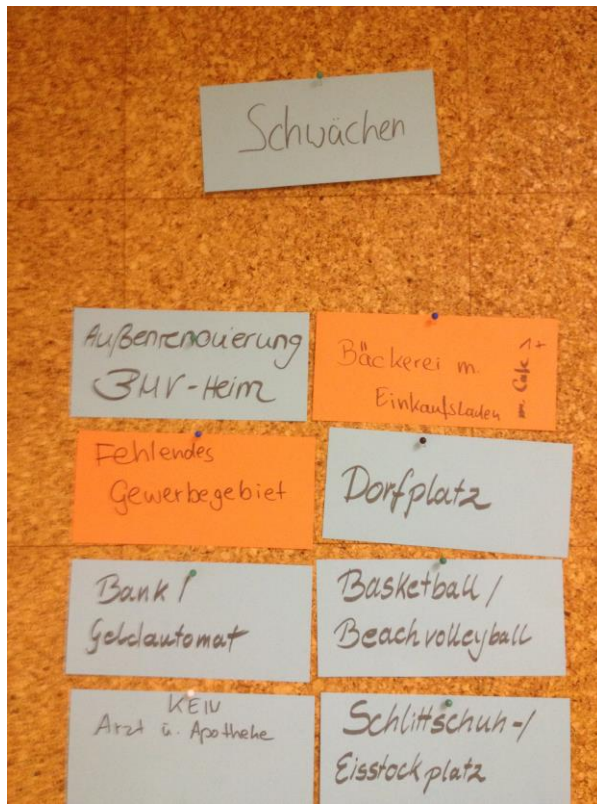 Schwächen
Außenrenovierung
BMV-Heim
Bäckerei m.
Einkaufsladen
m. Cafe 1+
Fehlendes
Gewerbegebiet
Dorfplatz
Bank /
Geldautomat
Basketball /
Beachvolleyball
KEIN
Arzt ü. Apotheke
Schlittschuh-/
Eisstockplatz